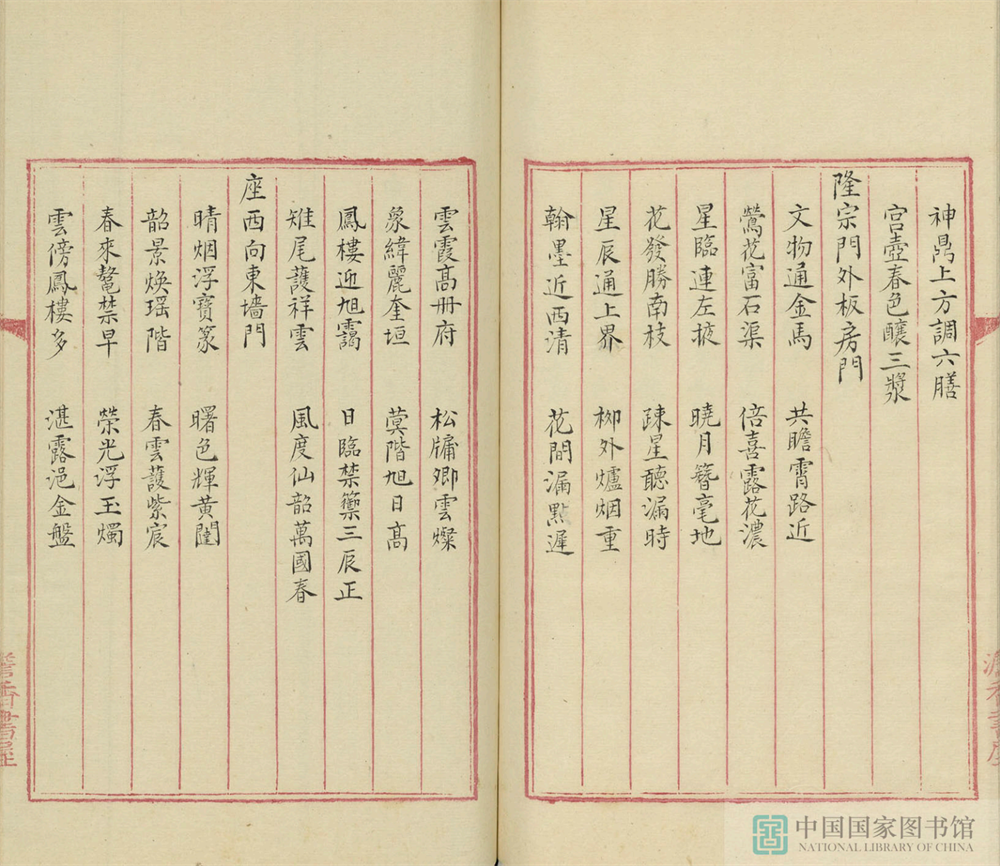 神鼎上方調六膳
宫壺春色釀三漿
隆宗門外板房門
文物通金馬　共瞻霄路近
鶯花富石渠　倍喜露花濃
星臨連左掖　曉月簪毫地
花發勝南枝　疎星聽漏時
星辰通上界　栁外爐烟重
翰墨近西清　花間漏點遲
雲霞髙冊府　松牖卿雲燦
象緯麗奎垣　蓂階旭日髙
鳳樓迎旭靄　日臨禁籞三辰正
雉尾護祥雲　風度仙韶萬國春
座西向東墻門
晴烟浮寶篆　曙色輝黄闥
韶景煥瑶階　春雲護紫宸
春來鼇禁早　榮光浮玉燭
雲傍鳳樓多　湛露浥金盤
中国国家图书馆
NATIONAL LIBRARY OF CHINA